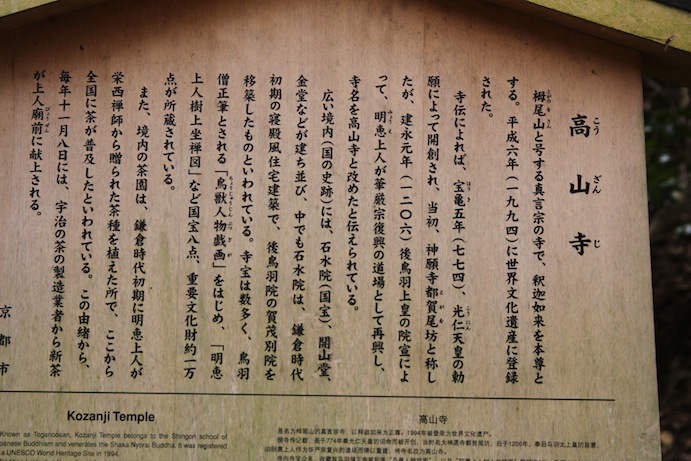 高山寺
こう ざん じ
栂尾山と号する真言宗の寺で、釈迦如来を本尊と
する。平成六年(一九九四)に世界文化遺産に登録
された。
寺伝によれば、宝亀五年(七七四)、光仁天皇の勅
願によって開創され、当初、神願寺都賀尾坊と称し
たが、建永元年(一二〇六)後鳥羽上皇の院宣によ
って、明恵上人が華厳宗復興の道場として再興し、
寺名を高山寺と改めたと伝えられている。
広い境内(国の史跡)には、石水院(国宝)、開山堂、
金堂などが建ち並び、中でも石水院は、鎌倉時代
初期の寝殿風住宅建築で、後鳥羽院の賀茂別院を
移築したものといわれている。寺宝は数多く、鳥羽
僧正筆とされる「鳥獣人物戯画」をはじめ、「明恵
上人樹上坐禅図」など国宝八点、重要文化財約一万
点が所蔵されている。
また、境内の茶園は、鎌倉時代初期に明恵上人が
栄西禅師から贈られた茶種を植えた所で、ここから
全国に茶が普及したといわれている。この由緒から、
毎年十一月八日には、宇治の茶の製造業者から新茶
が上人廟前に献上される。
京都市
Kozanji Temple
Known as Toganoosan, Kozanji Temple belongs to the Shingon school of
panese Buddhism and venerates the Shaka Nyorai Buddha. It was registered
a UNESCO World Heritage Site in 1994.
高山寺